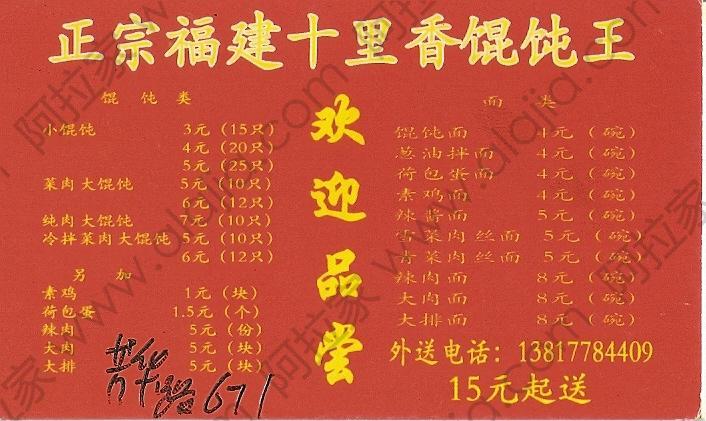 正宗福建十里香馄饨王
馄饨类
小馄饨 3元（15只）
4元（20只）
5元（25只）
菜肉大馄饨 5元（10只）
6元（12只）
纯肉大馄饨 7元（10只）
冷拌菜肉大馄饨 5元（10只）
6元（12只）
另加
素鸡 1元（块）
荷包蛋 1.5元（个）
辣肉 5元（份）
大肉 5元（块）
大排 5元（块）
671
欢迎品尝
面类
馄饨面 4元（碗）
葱油拌面 4元（碗）
荷包蛋面 4元（碗）
素鸡面 4元（碗）
辣酱面 5元（碗）
雪菜肉丝面 5元（碗）
青菜肉丝面 5元（碗）
辣肉面 8元（碗）
大肉面 8元（碗）
大排面 8元（碗）
外送电话：13817784409
15元起送
阿拉家 www.alajia.com